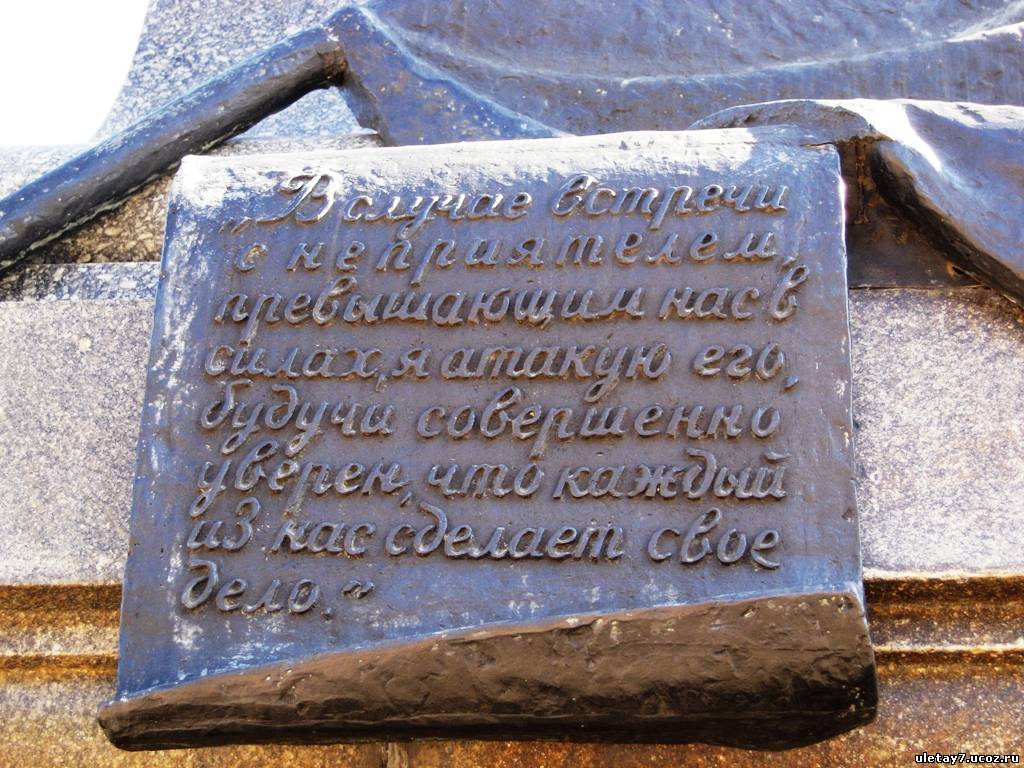 „В случае встречи
с неприятелем,
превышающим нас в
силах, я атакую его,
будучи совершенно
уверен, что каждый
из нас сделает свое
дело.“
uletay7.ucoz.ru